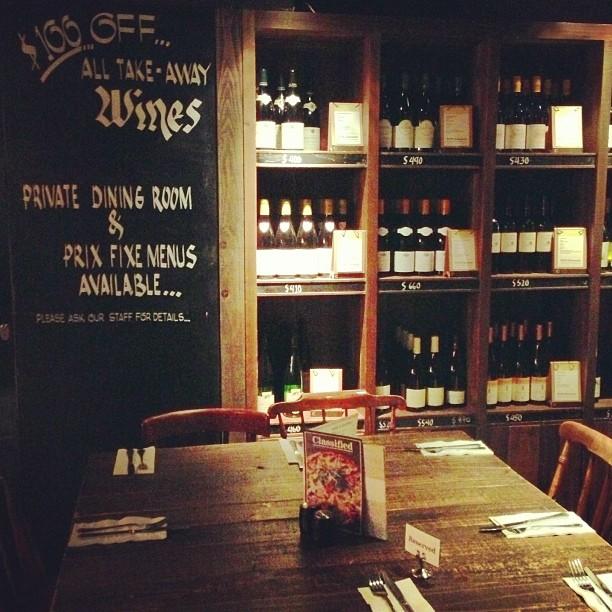 $100 OFF...
ALL TAKE-AWAY
Wines
PRIVATE DINING ROOM
&
PRIX FIXE MENUS
AVAILABLE...
PLEASE ASK OUR STAFF FOR DETAILS...
$490
$430
$410
$660
$520
$540
$450
Classified
Reserved